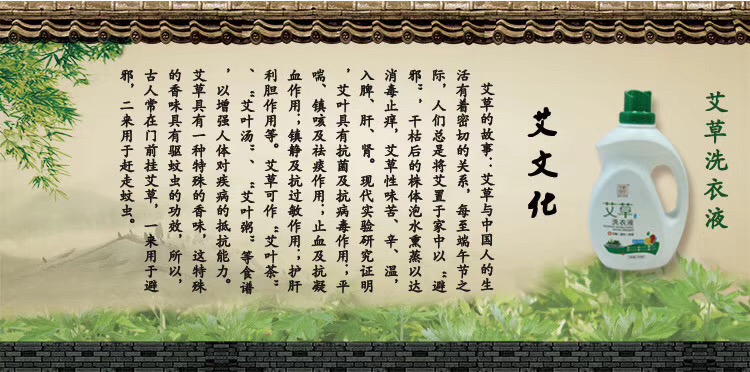 艾草洗衣液
艾草
洗衣液
艾文化
艾草的故事：艾草与中国人的生
活有着密切的关系，每至端午节之
际，人们总是将艾置于家中以“避
邪”，干枯后的株体泡水熏蒸以达
消毒止痒，艾草性味苦、辛、温，
入脾、肝、肾。现代实验研究证明
，艾叶具有抗菌及抗病毒作用；平
喘、镇咳及祛痰作用；止血及抗凝
血作用；镇静及抗过敏作用；护肝
利胆作用等。艾草可作“艾叶茶”
、“艾叶汤”、“艾叶粥”等食谱
，以增强人体对疾病的抵抗能力。
艾草具有一种特殊的香味，这特殊
的香味具有驱蚊虫的功效，所以，
古人常在门前挂艾草，一来用于避
邪，二来用于赶走蚊虫。